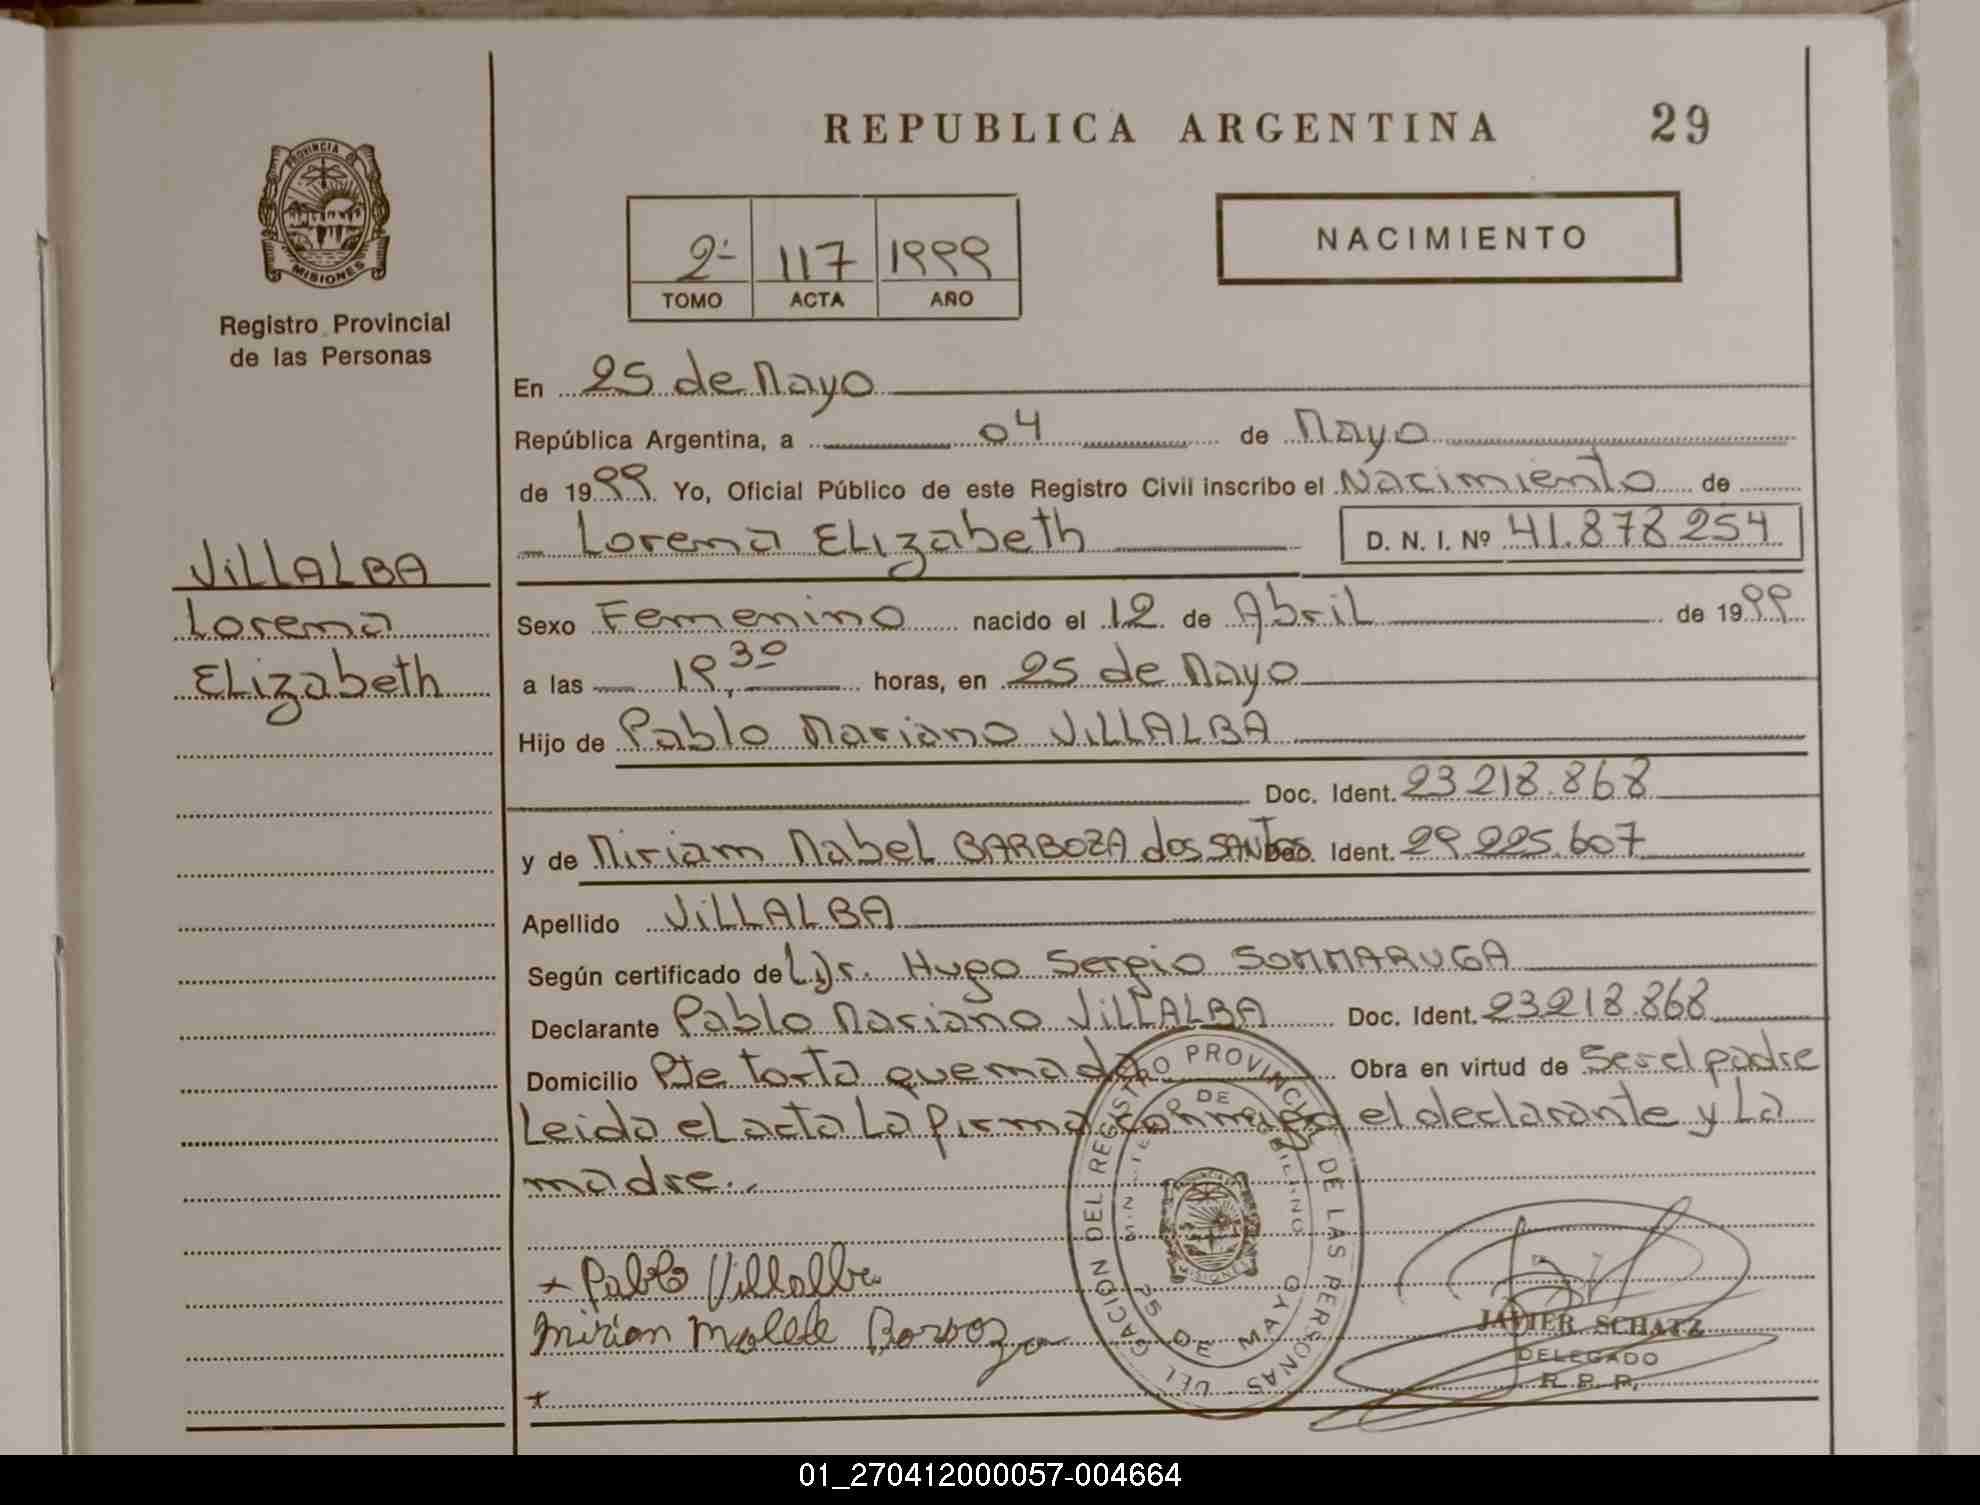 REPUBLICA ARGENTINA 29
PROVINCIA DE
MISIONES
Registro Provincial
de las Personas
2- 117 1999
TOMO ACTA AÑO
NACIMIENTO
En 25 de Mayo
República Argentina, a 04 de Mayo
de 1999 Yo, Oficial Público de este Registro Civil inscribo el Nacimiento de
Lorena ELizabeth D. N. I. Nº 41.878.254
VILLALBA
Lorena
ELizabeth
Sexo Femenino nacido el 12 de Abril de 1999
a las 19,30 horas, en 25 de Mayo
Hijo de Pablo Mariano VILLALBA
Doc. Ident. 23.218.868
y de Miriam Mabel BARBOZA dos SANTOS Doc. Ident. 29.225.607
Apellido VILLALBA
Según certificado de Dr. Hugo Sergio SOMMARUGA
Declarante Pablo Mariano VILLALBA Doc. Ident. 23.218.868
Domicilio Pje torta quemada Obra en virtud de Ser el padre
Leida el acta La firma conmigo el declarante y La
madre.
Pablo Villalba
Mirian Barboza
DELEGACION DEL REGISTRO PROVINCIAL DE LAS PERSONAS
MINISTERIO DE GOBIERNO
25 DE MAYO
MISIONES
JAVIER SCHATZ
DELEGADO
R. P. P.
01_270412000057-004664